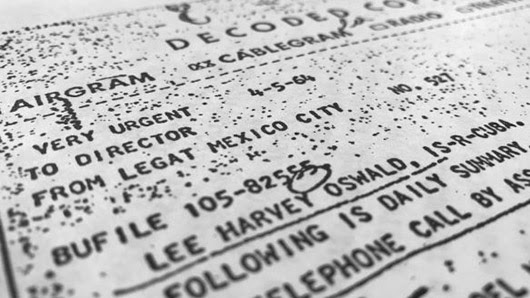 DECODED COPY
AIRGRAM CABLEGRAM RADIO
VERY URGENT 4-5-64
TO DIRECTOR NO. 527
FROM LEGAT MEXICO CITY
BUFILE 105-82555
LEE HARVEY OSWALD, IS-R-CUBA.
FOLLOWING IS DAILY SUMMARY.
TELEPHONE CALL BY